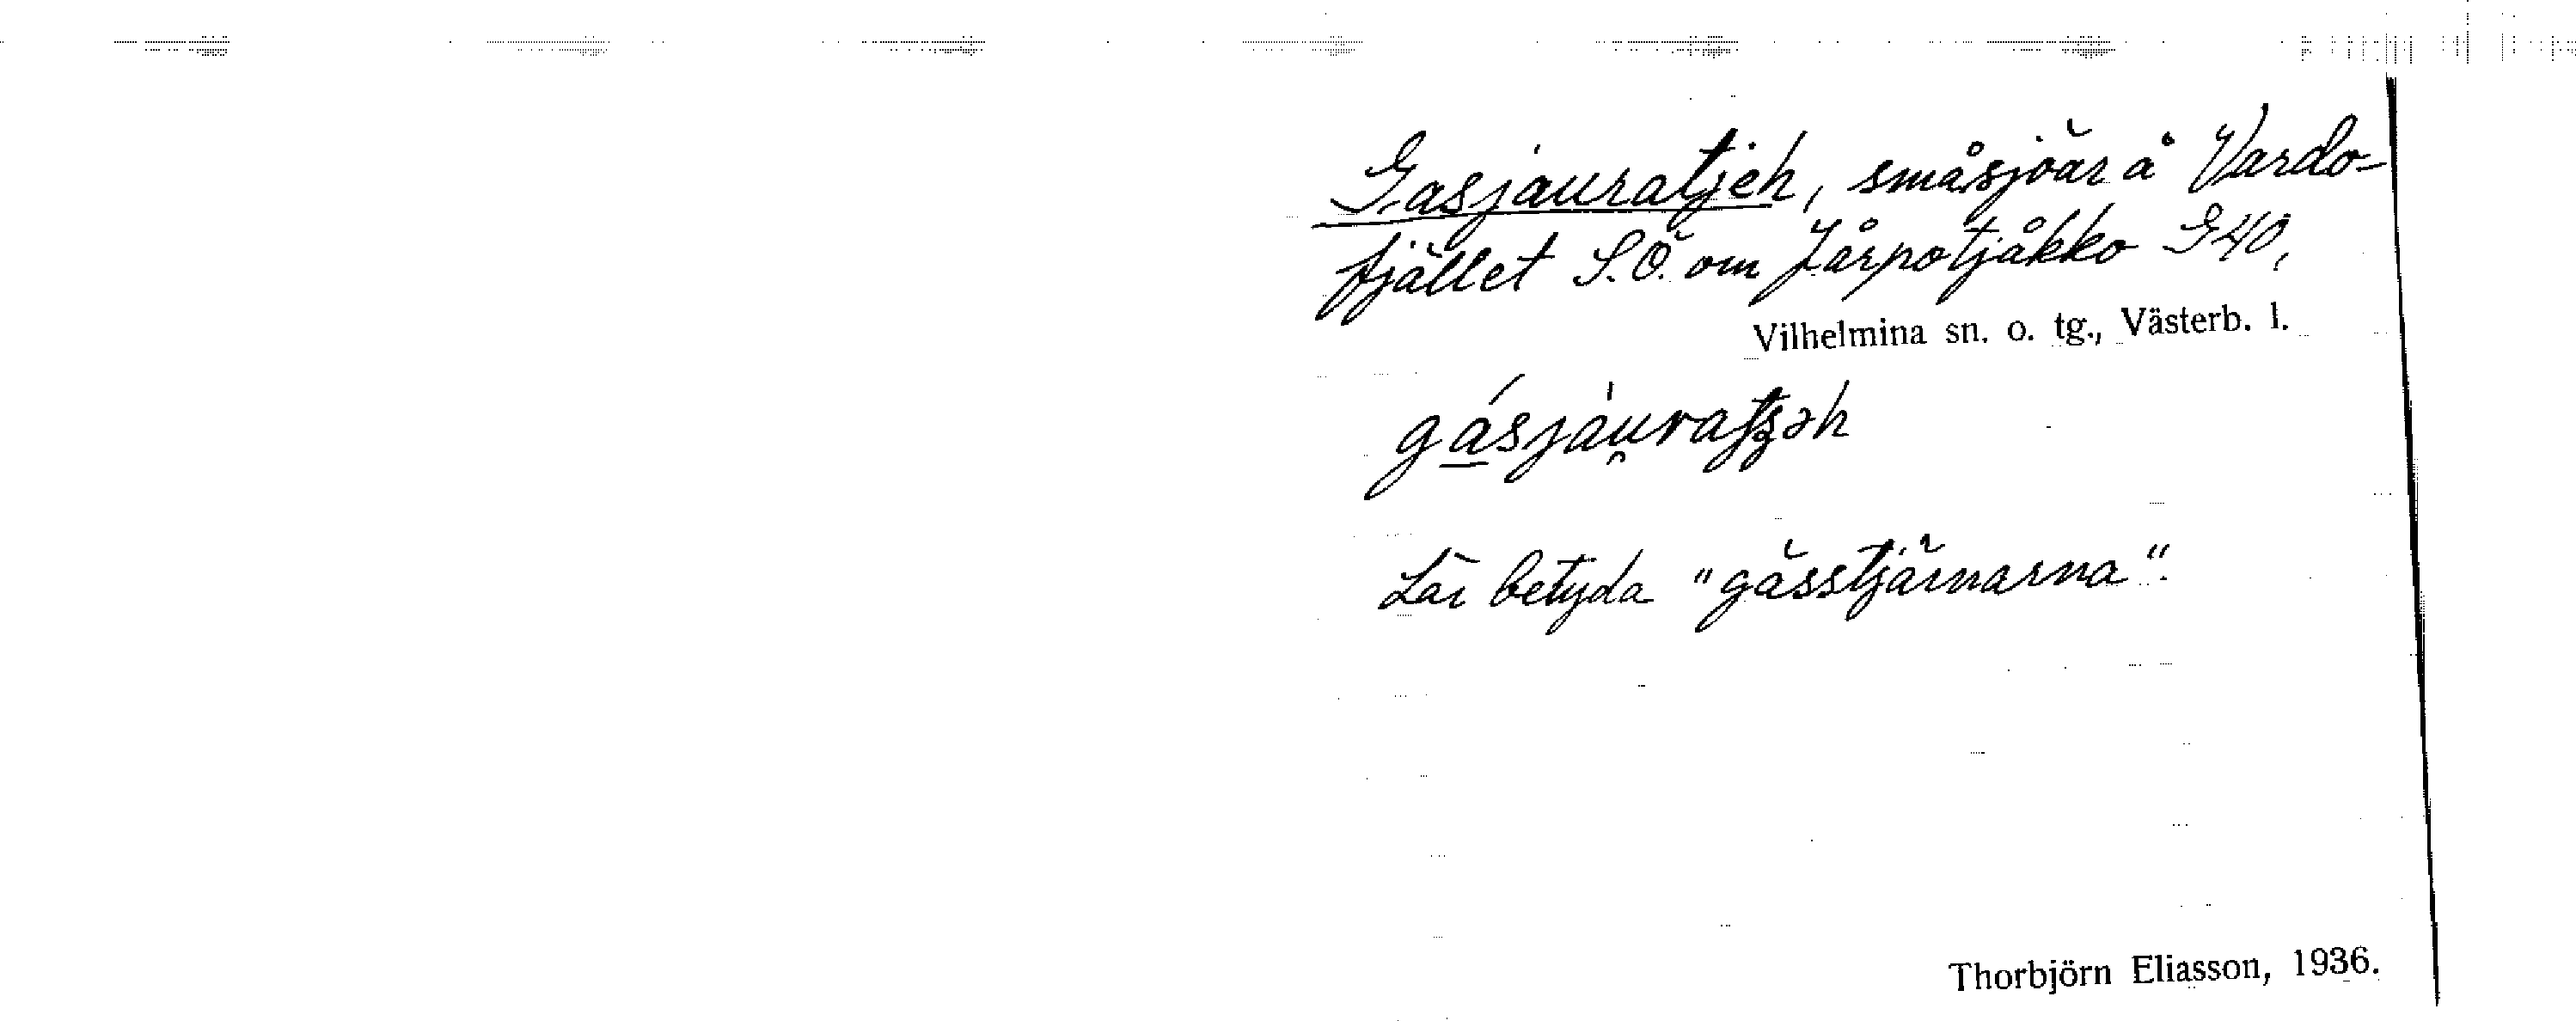 Gasjauratjeh, småsjöar å Vardo-
fjället S.Ö. om Jårpotjåkko G40,
Vilhelmina sn. o. tg., Västerb. l.
gásjàu̯ratʒəh
Lär betyda "gässtjärnarna".
Thorbjörn Eliasson, 1936.